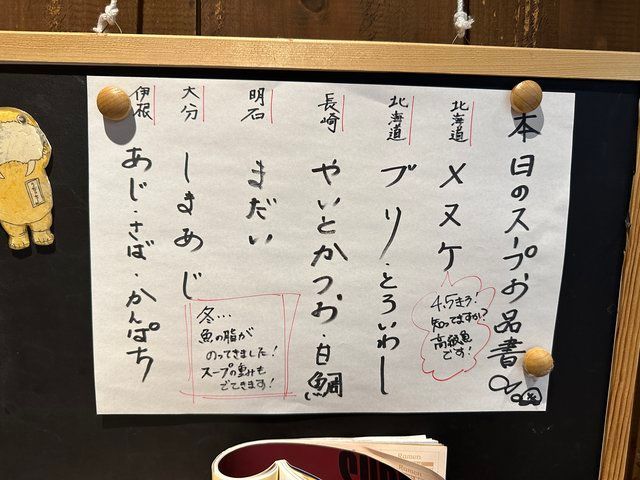 本日のスープお品書
北海道
メヌケ
4.5きろ!
知ってますか?
高級魚
です!
北海道
ブリ・とろいわし
長崎
やいとかつお・白鯛
明石
まだい
大分
しまあじ
冬…
魚の脂が
のってきました!
スープの重みも
でてきます!
伊根
あじ・さば・かんぱち
Ramen
Ramen